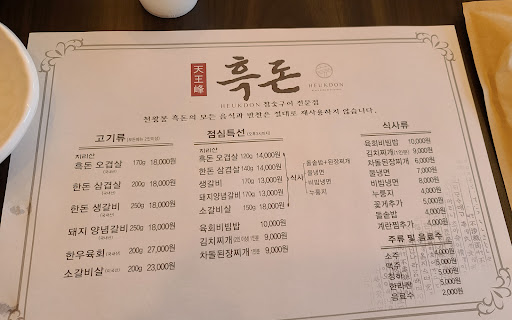 天王峰
흑돈
HEUKDON
HEUKDON 참숯구이 전문점
천왕봉 흑돈의 모든 음식과 반찬은 절대로 재사용하지 않습니다.
고기류
지리산
흑돈 오겹살 170g 18,000원
한돈 삼겹살 200g 18,000원
한돈 생갈비 250g 18,000원
돼지 양념갈비 250g 18,000원
한우육회 200g 27,000원
소갈비살 200g 23,000원
점심특선
지리산
흑돈 오겹살 170g 14,000원
한돈 삼겹살 140g 14,000원
생갈비 170g 13,000원
돼지양념갈비 170g 13,000원
소갈비살 150g 18,000원
+식사
돌솥밥+된장찌개
물냉면
비빔냉면
누룽지
육회비빔밥 10,000원
김치찌개 9,000원
차돌된장찌개 9,000원
식사류
육회비빔밥 10,000원
김치찌개 9,000원
차돌된장찌개 9,000원
물냉면 7,000원
비빔냉면 8,000원
누룽지 4,000원
꽃게추가 5,000원
돌솥밥 4,000원
계란찜추가 4,000원
주류 및 음료수
소주 4,000원
맥주 4,000원
청하 5,000원
한라산 5,000원
음료수 2,000원